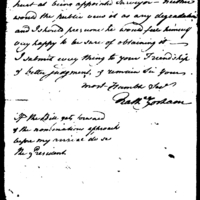 hurt at being appointed Surveyor - neither
would the public view it as any degradation
and I should presume he would feel himself
very happy to be sure of obtaining it
I submit every thing to your Friendship
& better judgment, & remain Sir yours
most Humble Serv
Nath Gorham
If the Bill gets forward
& the nominations approach
before my arrival do see
the President